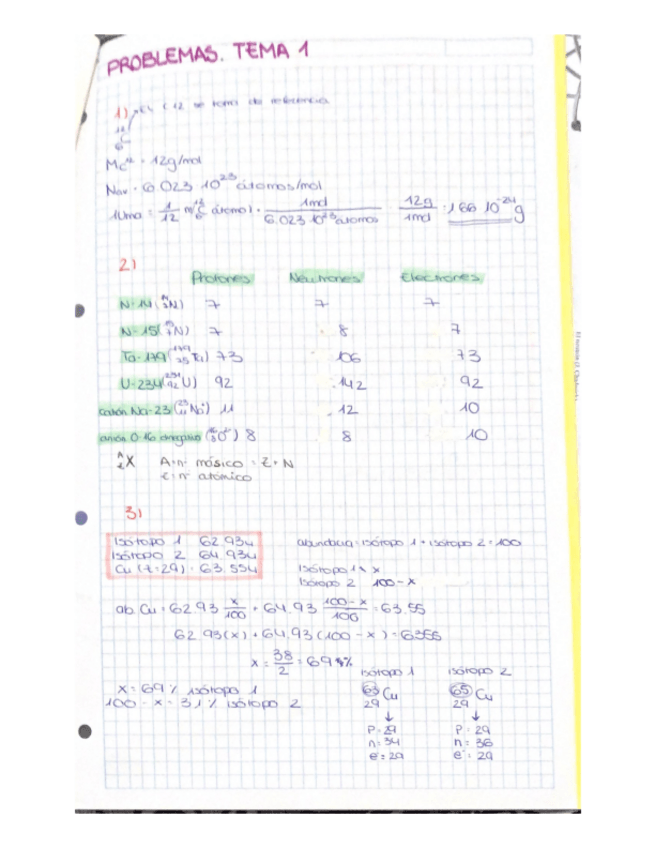 PROBLEMAS. TEMA 1
1) El C12 se toma de referencia
12
C
6
Mc12 = 12g/mol
Nav = 6.023 10^23 átomos/mol
1Uma = 1/12 m(12 6 C átomo) · 1mol / 6.023 10^23 átomos · 12g / 1mol = 1,66 10^-24 g
2)
Protones Neutrones Electrones
N-14 (N) 7 7 7
N-15 (N) 7 8 7
Ta-179 (Ta) 73 106 73
U-234 (234 92 U) 92 142 92
catión Na-23 (23 11 Na+) 11 12 10
anión O-16 (O) 8 8 10
A Z X A = nº másico = Z + N
Z = nº atómico
3)
isótopo 1 62.93u
isótopo 2 64.93u
Cu (Z=29) = 63.55u
abundacia = isótopo 1 + isótopo 2 = 100
isótopo 1 x
isótopo 2 100 - x
ab Cu = 62 93 x/100 + 64.93 100-x/100 = 63,55
62 93(x) + 64.93 (100 - x) = 6355
x = 38/2 = 69%
x = 69% isótopo 1
100 - x = 31% isótopo 2
isótopo 1 isótopo 2
63 Cu 65 Cu
29 29
↓ ↓
P = 29 P = 29
n = 34 n = 36
e- = 29 e- = 29